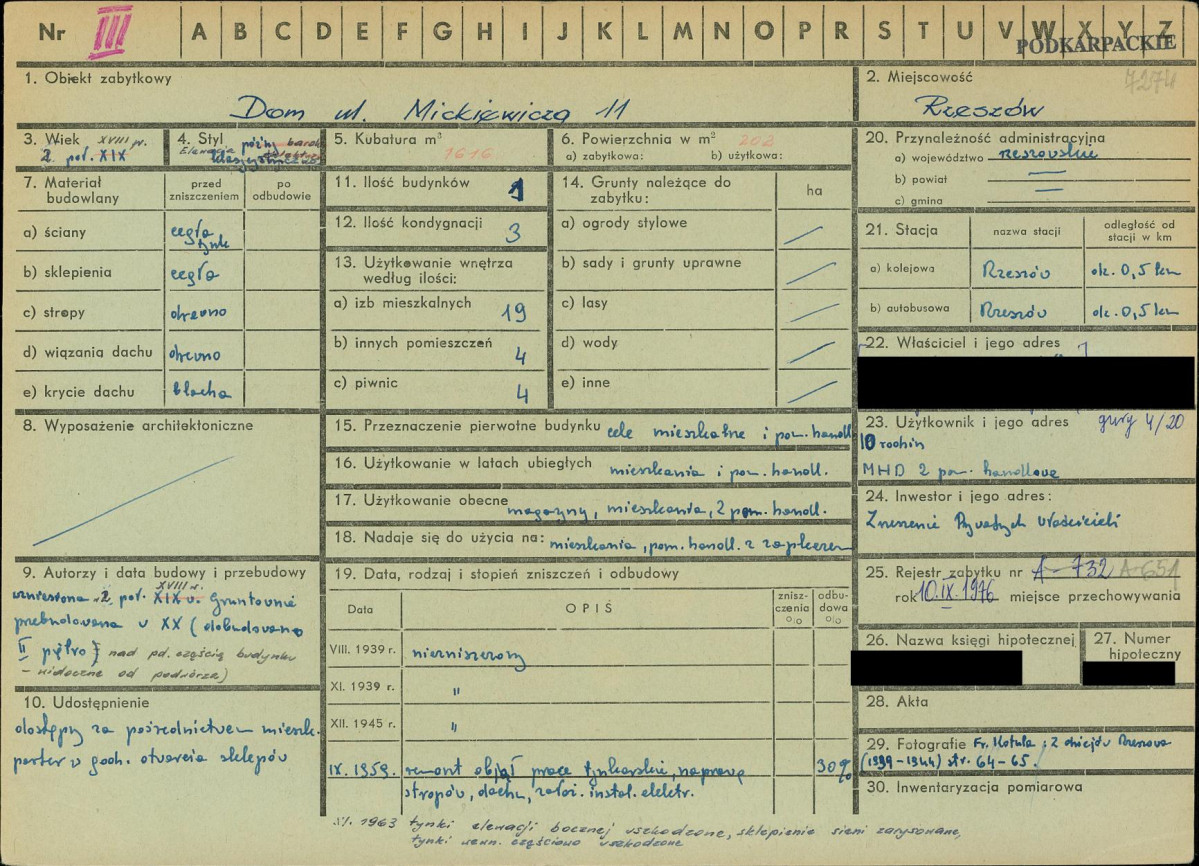 Nr III A B C D E F G H I J K L M N O P R S T U V W X Y Z
PODKARPACKIE
1. Obiekt zabytkowy
Dom ul. Mickiewicza 11
2. Miejscowość
7274
Rzeszów
3. Wiek XVIII w.
2. poł. XIX
4. Styl późny barok
Elewacja klasycystyczna
5. Kubatura m³
1616
6. Powierzchnia w m² 203
a) zabytkowa: b) użytkowa:
20. Przynależność administracyjna
a) województwo rzeszowskie
b) powiat
c) gmina
7. Materiał budowlany
przed zniszczeniem
po odbudowie
a) ściany cegła tynk
b) sklepienia cegła
c) stropy drewno
d) wiązania dachu drewno
e) krycie dachu blacha
11. Ilość budynków 1
12. Ilość kondygnacji 3
13. Użytkowanie wnętrza według ilości:
a) izb mieszkalnych 19
b) innych pomieszczeń 4
c) piwnic 4
14. Grunty należące do zabytku:
ha
a) ogrody stylowe
b) sady i grunty uprawne
c) lasy
d) wody
e) inne
21. Stacja
nazwa stacji
odległość od stacji w km
a) kolejowa Rzeszów ok. 0,5 km
b) autobusowa Rzeszów ok. 0,5 km
22. Właściciel i jego adres
8. Wyposażenie architektoniczne
15. Przeznaczenie pierwotne budynku cele mieszkalne i pom. handl
16. Użytkowanie w latach ubiegłych mieszkania i pom. handl.
17. Użytkowanie obecne magazyny, mieszkania, 2 pom. handl.
18. Nadaje się do użycia na: mieszkania, pom. handl. z zapleczem
23. Użytkownik i jego adres 4/20
10 rodzin
MHD 2 pom. handlowe
24. Inwestor i jego adres:
Zrzeszenie Prywatnych Właścicieli
25. Rejestr zabytku nr A-732 A-651
rok 10.IX.1976 miejsce przechowywania
26. Nazwa księgi hipotecznej
27. Numer hipoteczny
28. Akta
29. Fotografie Fr. Kotula: Z dziejów Rzeszowa
(1939-1944) str. 64-65.
30. Inwentaryzacja pomiarowa
9. Autorzy i data budowy i przebudowy
XVIII w.
wzniesiona w 2. poł. XIX w. Gruntownie
przebudowana w XX (dobudowano
II piętro) nad pd. częścią budynku
- widoczne od podwórza)
10. Udostępnienie
dostępny za pośrednictwem mieszk.
parter w godz. otwarcia sklepów
19. Data, rodzaj i stopień zniszczeń i odbudowy
Data OPIS zniszczenia o|o odbudowa o|o
VIII. 1939 r. niezniszczony
XI. 1939 r. "
XII. 1945 r. "
IX. 1959. remont objął prace tynkarskie, naprawę 30%
stropów, dachu, założ. instal. elektr.
XI. 1963 tynki elewacji bocznej uszkodzone, sklepienie sieni zarysowane,
tynki wewn. częściowo uszkodzone